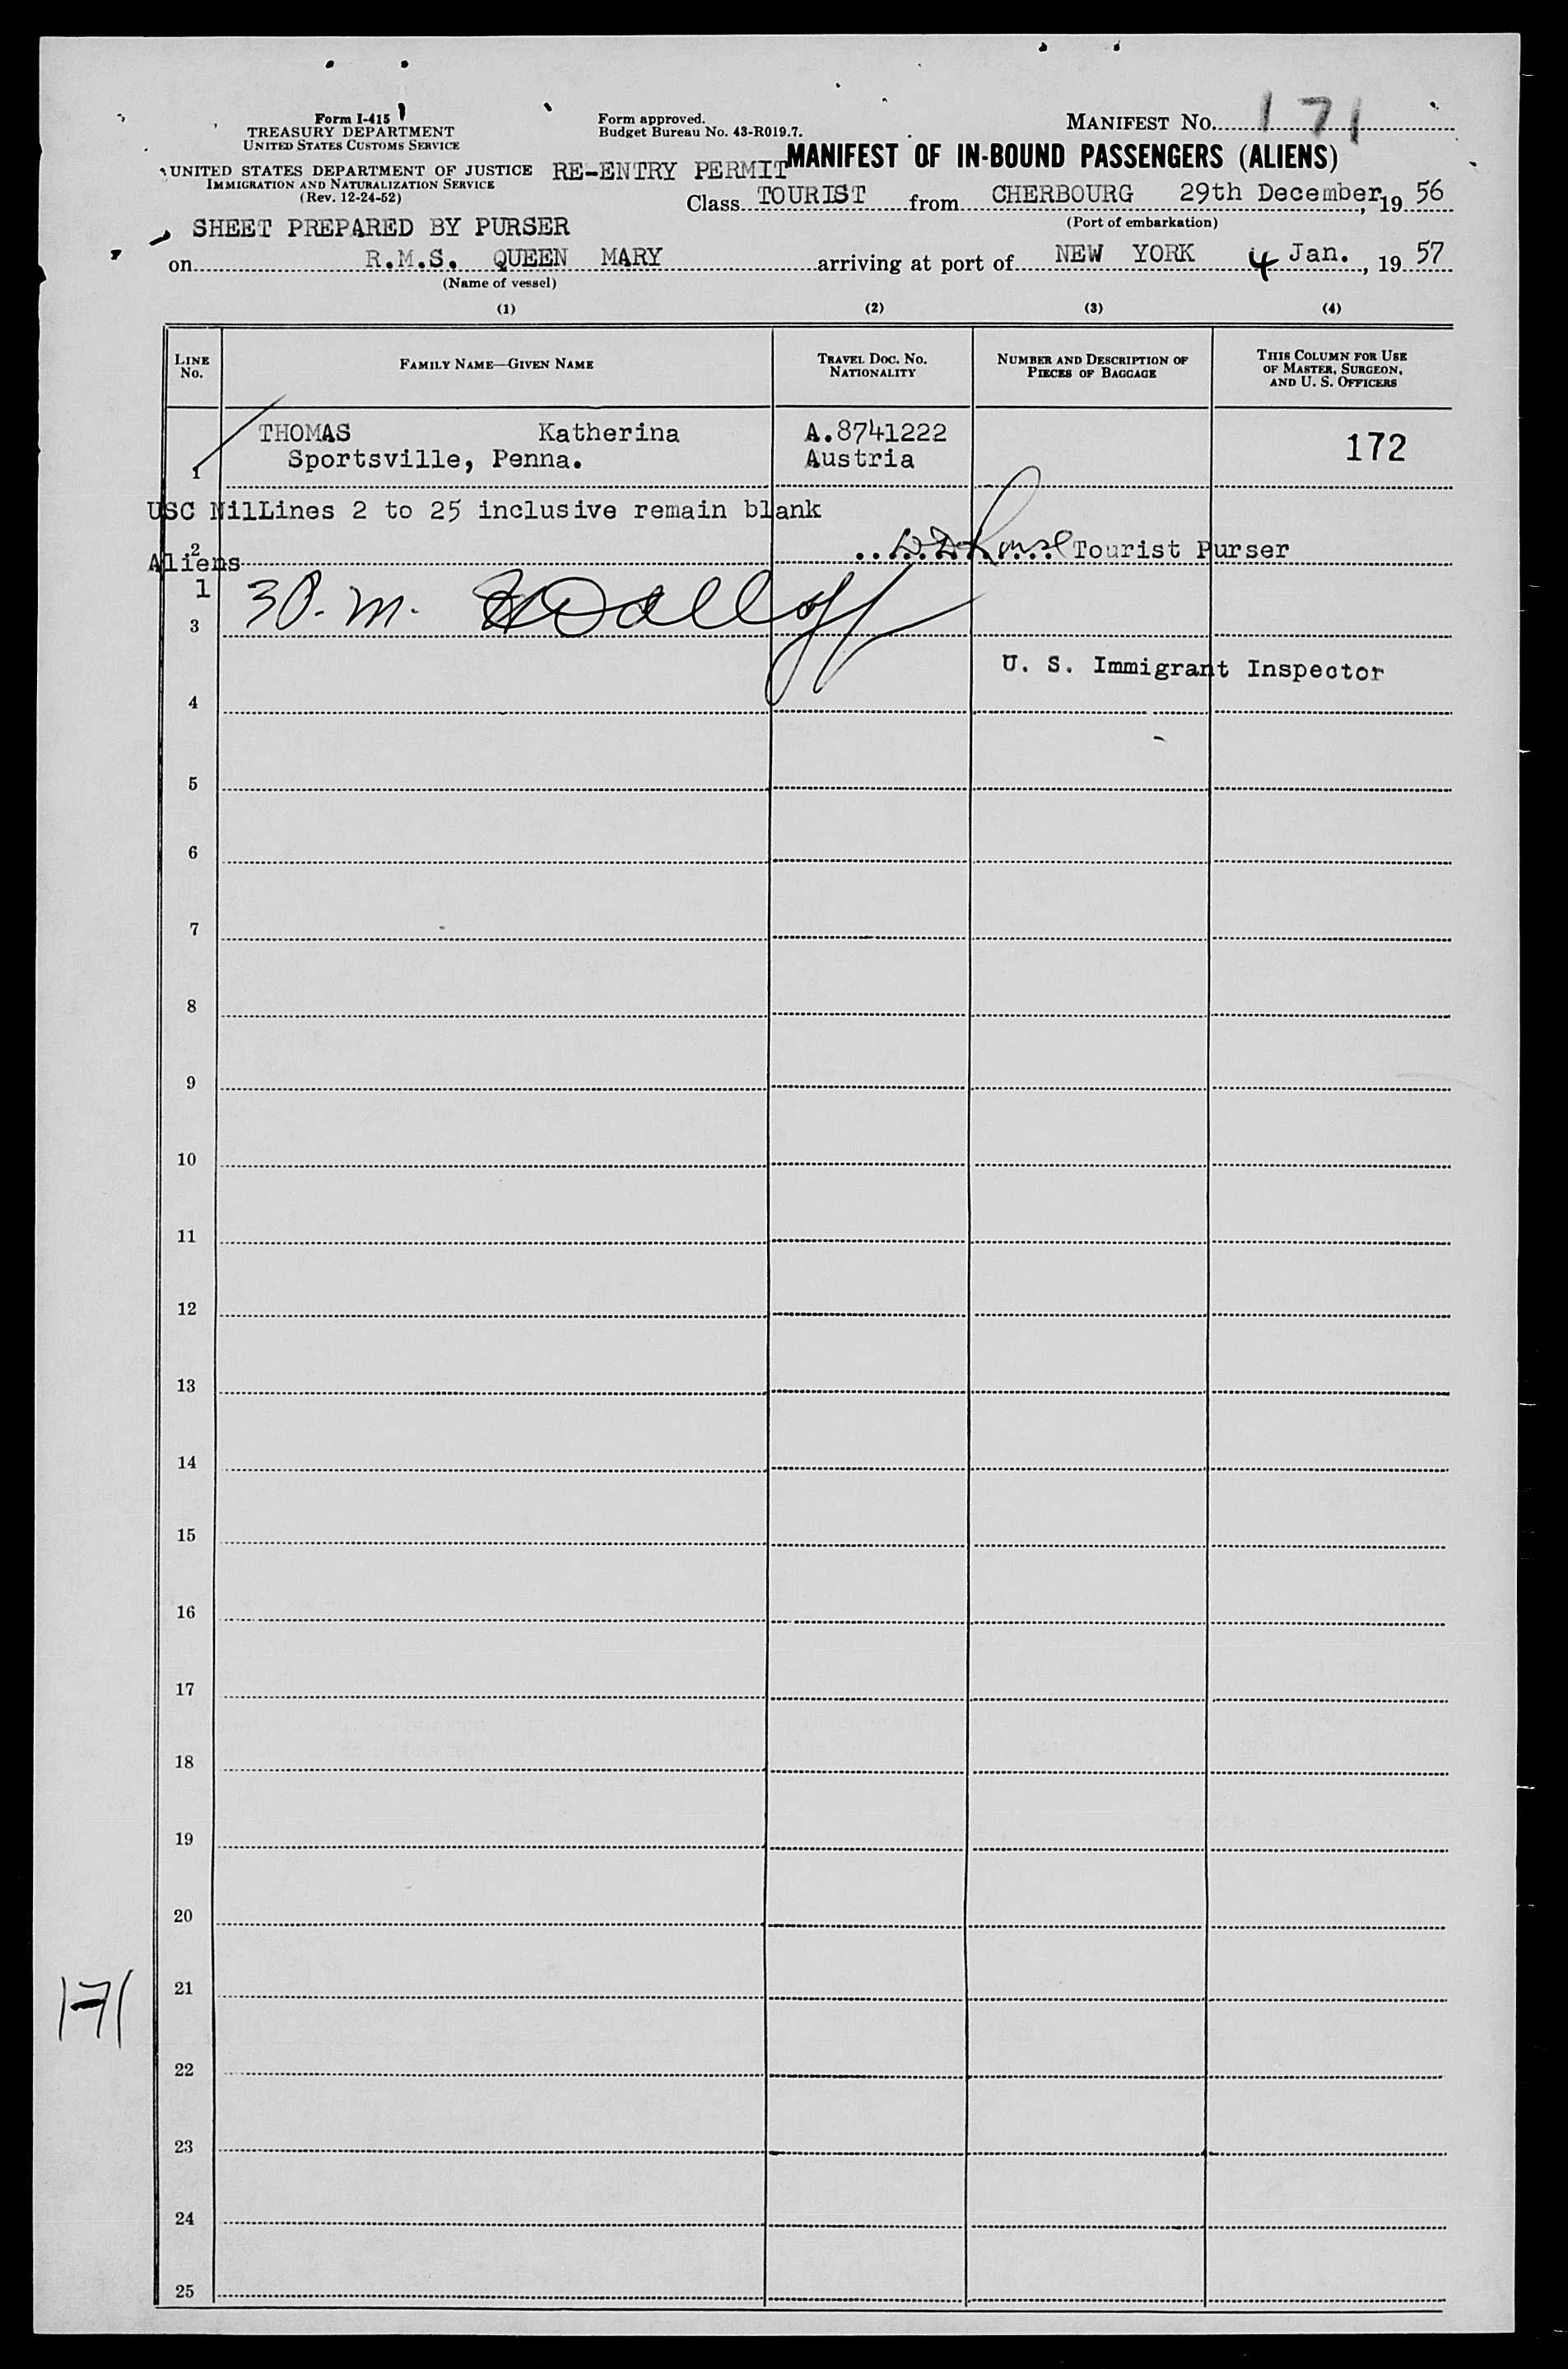 Form I-415
TREASURY DEPARTMENT
UNITED STATES CUSTOMS SERVICE
UNITED STATES DEPARTMENT OF JUSTICE
IMMIGRATION AND NATURALIZATION SERVICE
(Rev. 12-24-52)
Form approved.
Budget Bureau No. 43-R019.7.
MANIFEST NO. 171
RE-ENTRY PERMIT MANIFEST OF IN-BOUND PASSENGERS (ALIENS)
Class TOURIST from CHERBOURG 29th December, 19 56
(Port of embarkation)
SHEET PREPARED BY PURSER
on R.M.S. QUEEN MARY arriving at port of NEW YORK 4 Jan. , 19 57
(Name of vessel)
(1) (2) (3) (4)
LINE NO. FAMILY NAME—GIVEN NAME TRAVEL DOC. NO. NATIONALITY NUMBER AND DESCRIPTION OF PIECES OF BAGGAGE THIS COLUMN FOR USE OF MASTER, SURGEON, AND U. S. OFFICERS
THOMAS Katherina A.8741222 172
1 Sportsville, Penna. Austria
USC Nil Lines 2 to 25 inclusive remain blank
2 Tourist Purser
Aliens
1
3
U. S. Immigrant Inspector
4
5
6
7
8
9
10
11
12
13
14
15
16
17
18
19
20
21
171
22
23
24
25